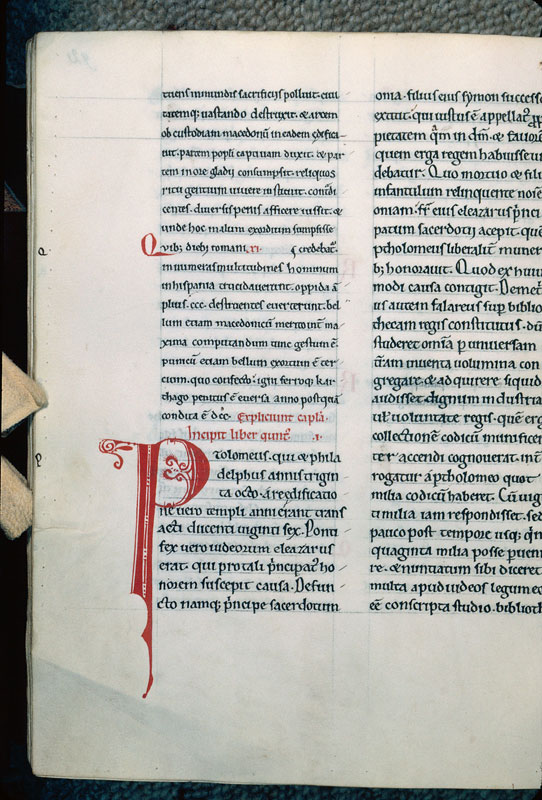 ritiens inmundis sacrificiis polluit. civi
tatemq; vastando destruxit. & arcem
ob custodiam macedonū in eadem ędifica
vit. partem popli captivam duxit. & par
tem in ore gladii consumpsit. reliquos
ritu gentium vivere instituit. contdi
centes. diversis penis afficere iussit. &
unde hoc malum exordium sumpsisse
Q vib; dieb; romani. xi. credebat̃.
innumeras multitudines hominum
in hispania trucidaverunt. oppida ā
plius. ccc. destruentes everterunt. bel
lum etiam macedonicū meruunt̃ ma
xima computandum tunc gestum ē.
punicū etiam bellum exortum ē ter
tium. quo confecto. igni ferroq; kar
thago penitus ē eversa anno postquā
condita ē dcc. Expliciunt capła.
Incipit liber quint᾿. i.
Ptolomeus. qui & phila
delphus annis trigin
ta octo. a reędificatio
ne vero templi anni erant trans
acti ducenti viginti sex. Ponti
fex vero iudeorum eleazarus
erat. qui pro tali p̄ncipat᾿ ho
norem suscepit causa. Defun
cto namq; p̄ncipe sacerdotum
onia. filius eius symon success
extitit. qui iustus ē appellat᾿. pp̄
pietatem q̄m in dm̄. & favorē
quem erga regem habuisse vi
debatur. Quo mortuo & fili
infantulum relinquente nōē
oniam. fr̄ eius eleazarus p̄nci
patum sacerdotii accepit. quē
ptholomeus liberalit̃ muner
b; honoravit. Quod ex huiu
modi causa contigit. Demet
us autem falareus sup̄ biblio
thecam regis constitutus. dū
studeret omīa p̄ universam
t̃ram inventa volumina con
gregare. & adquirere siquid
audisset dignum industria
ut᾿ voluntate regis. quē erg
collectionē codicū munificen
ter accendi cognoverat. int̃
rogatur a ptholomeo quot
milia codicū haberet. Cū vigi
ti milia iam respondisset. sed
pauco post tempore usq; q̄n
quaginta milia posse p̄veni
re. & nuntiatum sibi diceret
multa apud iudeos legum eo
eē conscripta studio. biblioth